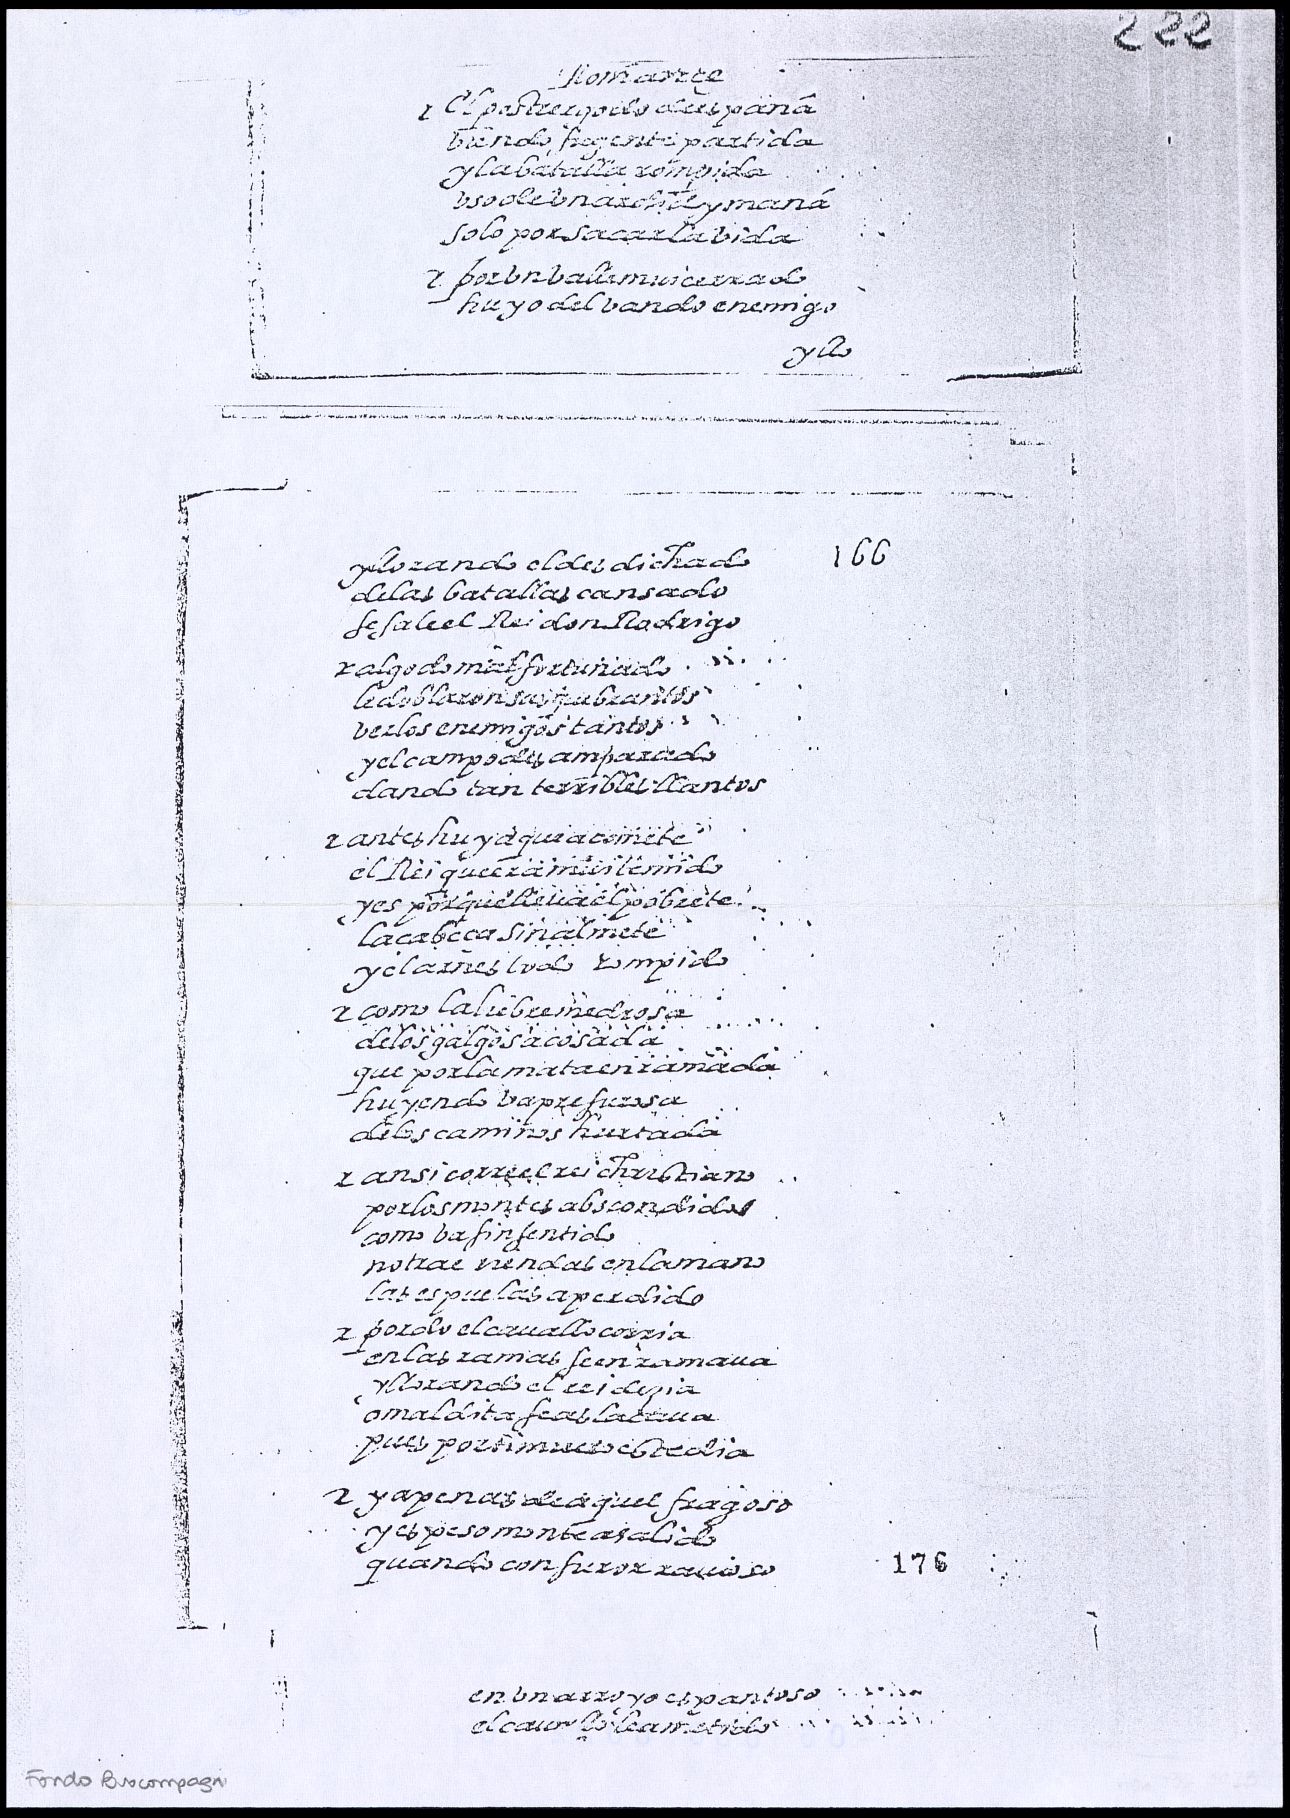 222
Romance
r El postrer godo de españa
biendo su gente partida
y la batalla rompida
uso de un ardid y maña
solo por sacar la vida
r por un valle mui cerrado
huyo del vando enemigo
y llo
y llorando el desdichado 166
de las batallas cansado
se sale el Rei don Rodrigo
r al godo mal fortunado
le doblaron sus quebrantos
ver los enemigos tantos
y el campo desamparado
dando tan terribles llantos
r antes huya que acomete
el Rei que era mui temido
y es porque lleua el pobrete
la cabeca sin almete
y el arnes todo rompido
r como la liebre medrosa
de los galgos acosada
que por la mata enramada
huyendo va presurosa
de los caminos hurtada
r ansi corre el rei christiano
por los montes abscondidos
como va sin sentido
no trae riendas en la mano
las espuelas a perdido
r por do el cauallo corria
en las ramas se enramaua
y llorando el rei dezia
o maldita seas la caua
pues por ti muero este dia
r y apenas de aquel fragoso
y espeso monte a salido
quando con furor rauioso 176
en un arroyo espantoso
el cauallo se a metido
Fondo Buoncompagni